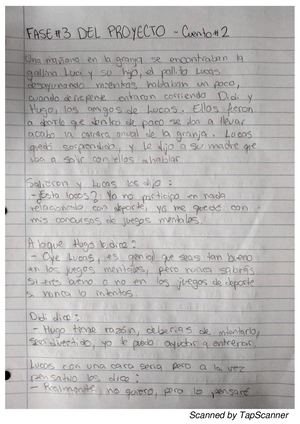 FASE #3 DEL PROYECTO - Cuento #2
Una mañana en la granja se encontraban la
gallina Luci y su hijo, el pollito Lucas
desayunando mientras hablaban un poco,
cuando de repente entraron corriendo Didi y
Hugo, los amigos de Lucas. Ellos fueron
a decirle que dentro de poco se iba a llevar
acabo la carrera anual de la granja. Lucas
quedó sorprendido, y le dijo a su madre que
iba a salir con ellos a hablar
Salieron y Lucas les dijo:
- ¿Esta locos? Yo no participo en nada
relacionado con deporte, yo me quedo con
mis concursos de juegos mentales.
A lo que Hugo le dice:
- Oye Lucas, es genial que seas tan bueno
en los juegos mentales, pero nunca sabrás
si eres bueno o no en los juegos de deporte
si nunca lo intentas.
Didi dice:
- Hugo tiene razón, deberías de intentarlo,
será divertido, yo te puedo ayudar a entrenar.
Lucas con una cara seria pero a la vez
pensativo les dice:
- Realmente no quiero, pero lo pensaré
Scanned by TapScanner